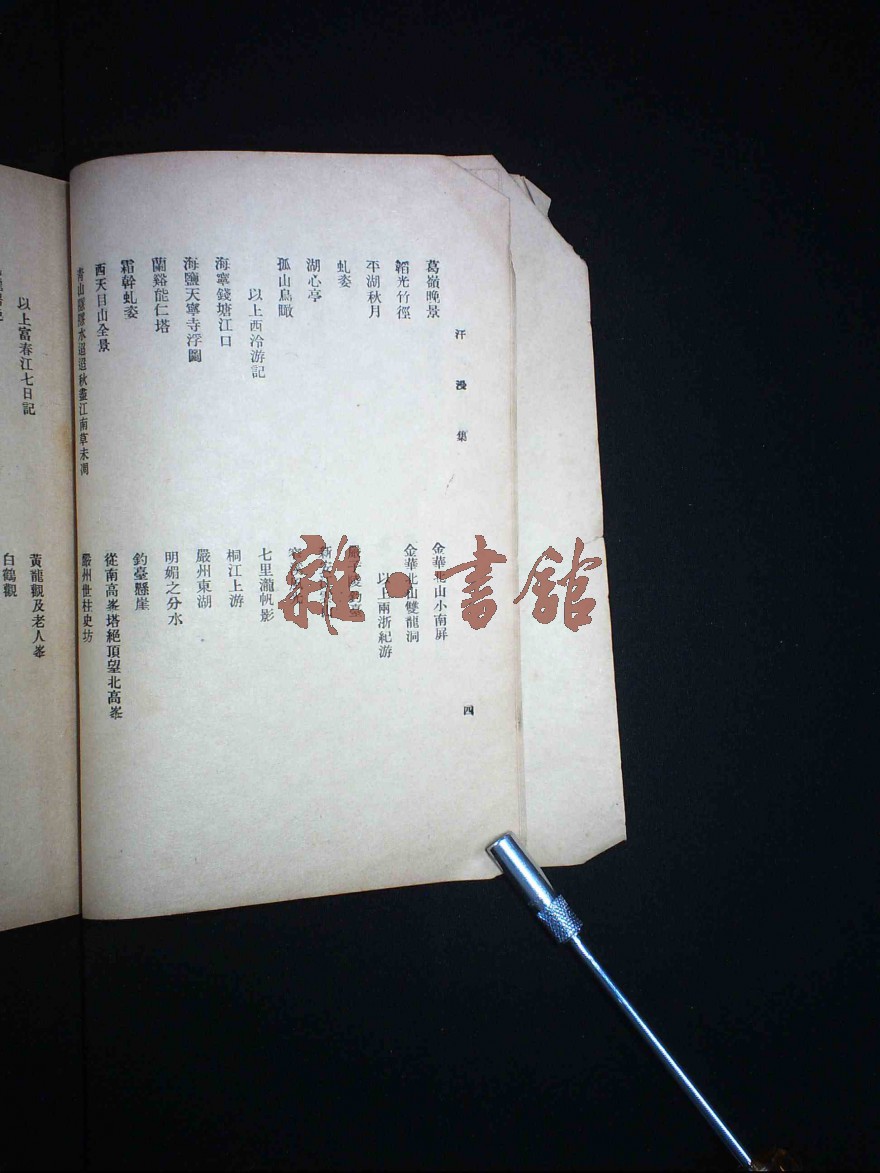 汗漫集
四
葛嶺晚景
韜光竹徑
平湖秋月
虬姿
湖心亭
孤山鳥瞰
以上西泠游記
海寧錢塘江口
海鹽天寧寺浮圖
蘭谿能仁塔
霜幹虬姿
西天目山全景
青山隱隱水迢迢秋盡江南草未凋
金華北山小南屏
金華北山雙龍洞
以上兩浙紀游
七里瀧帆影
桐江上游
嚴州東湖
明媚之分水
釣臺懸崖
從南高峯塔絕頂望北高峯
嚴州世柱史坊
以上富春江七日記
黃龍觀及老人峯
白鶴觀
雜·書館